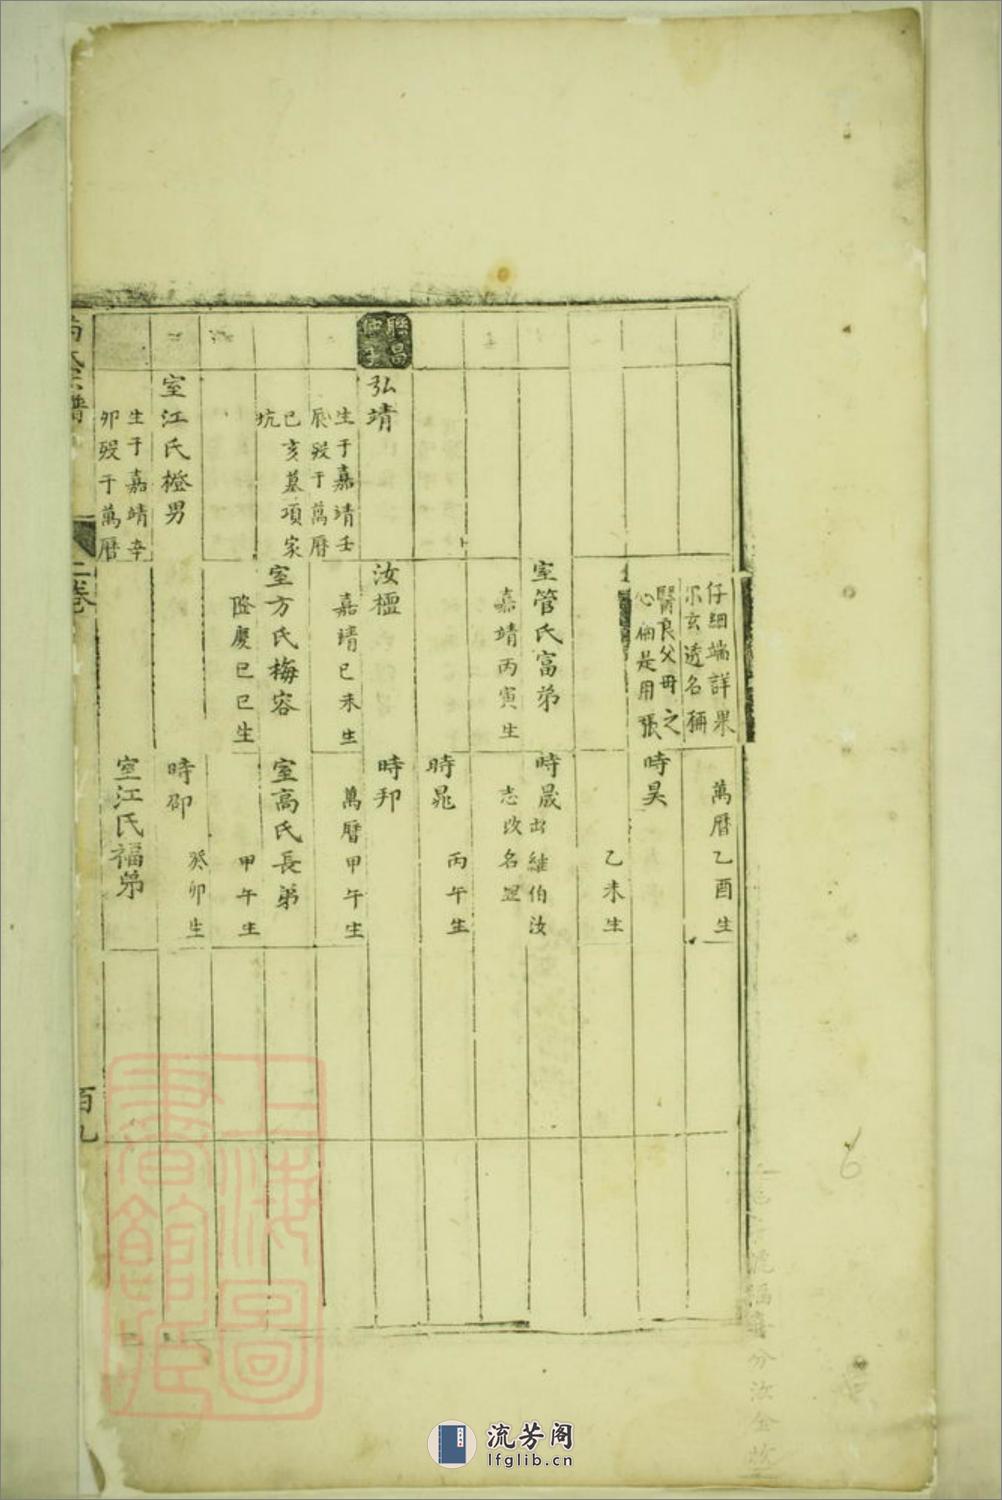 聯昌
仲子
弘靖
生于嘉靖壬
辰歿于萬曆
己亥墓項家
坑
室江氏橙男
生于嘉靖辛
卯歿于萬曆
仔細端詳果
尔玄透名稱
醫良父母之
心倆是用張
室管氏富弟
嘉靖丙寅生
汝橿
嘉靖己未生
室方氏梅容
隆慶己巳生
萬曆乙酉生
時昊
乙未生
時晟出繼伯汝
志改名
時晁
丙午生
時邦
萬曆甲午生
室高氏長弟
甲午生
時邵
癸卯生
室江氏福弟
宗譜
二卷
百九
上海圖
書館藏
分汝全
6
流芳阁
lfglib.cn